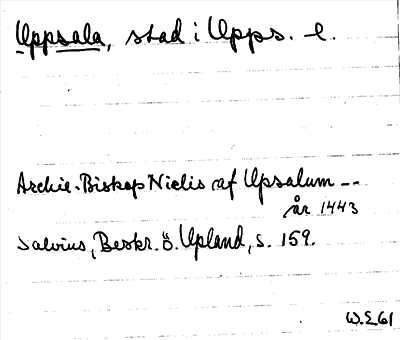 Uppsala, stad i Upps. l.
Archie. Biskop Niclis af Upsalum --
år 1443
Salvius, Beskr. ö. Upland, s. 159.
W.E. 61